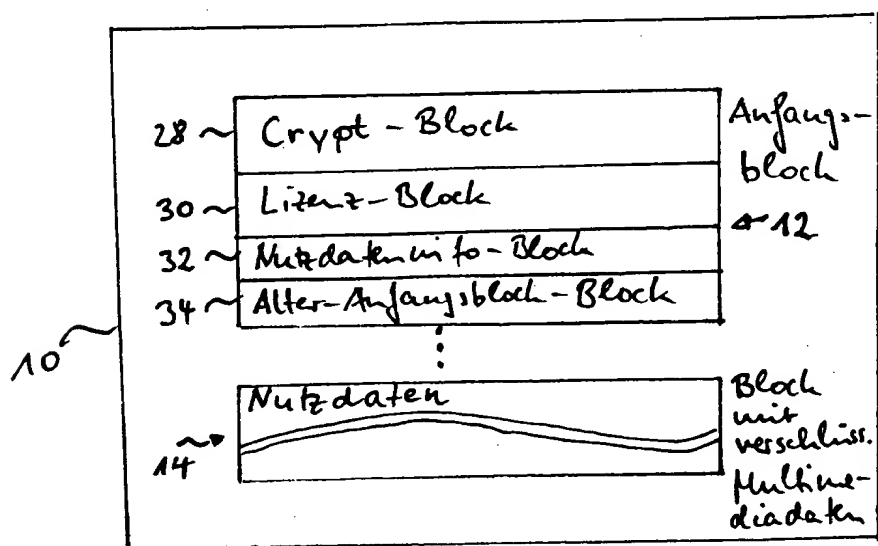 28 Crypt-Block
30 Lizenz-Block
32 Nutzdateninfo-Block
34 Alter-Anfangsblock-Block
Anfangs-
block
12
10
Nutzdaten
14
Block
mit
verschlüss.
Multime-
diadaten